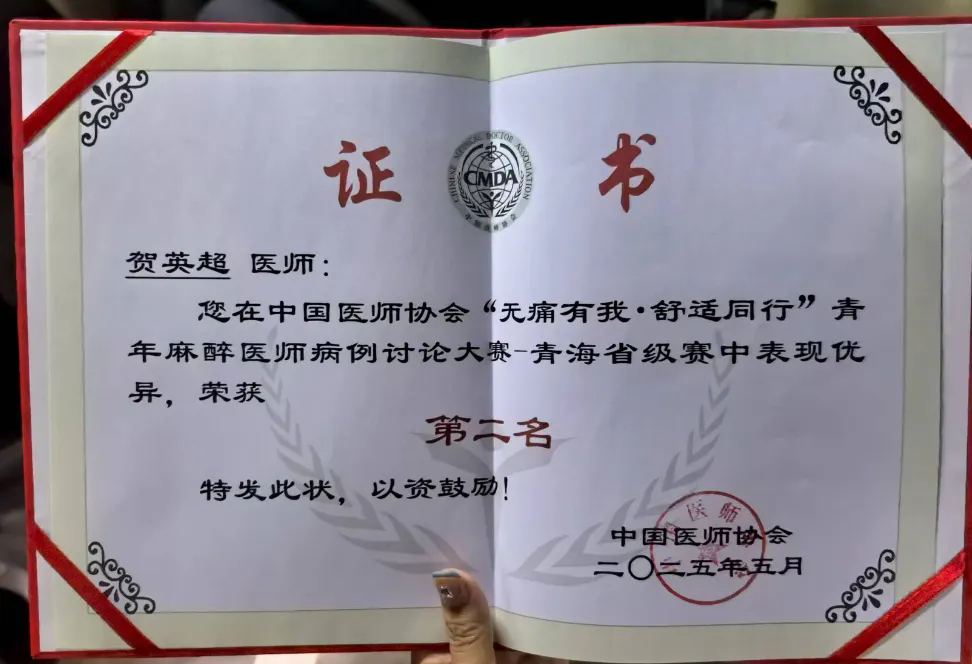 证书
CHINESE MEDICAL DOCTOR ASSOCIATION
CMDA
中国医师协会
贺英超 医师：
您在中国医师协会“无痛有我·舒适同行”青
年麻醉医师病例讨论大赛-青海省级赛中表现优
异，荣获
第二名
特发此状，以资鼓励！
中国医师协会
二〇二五年五月
医师